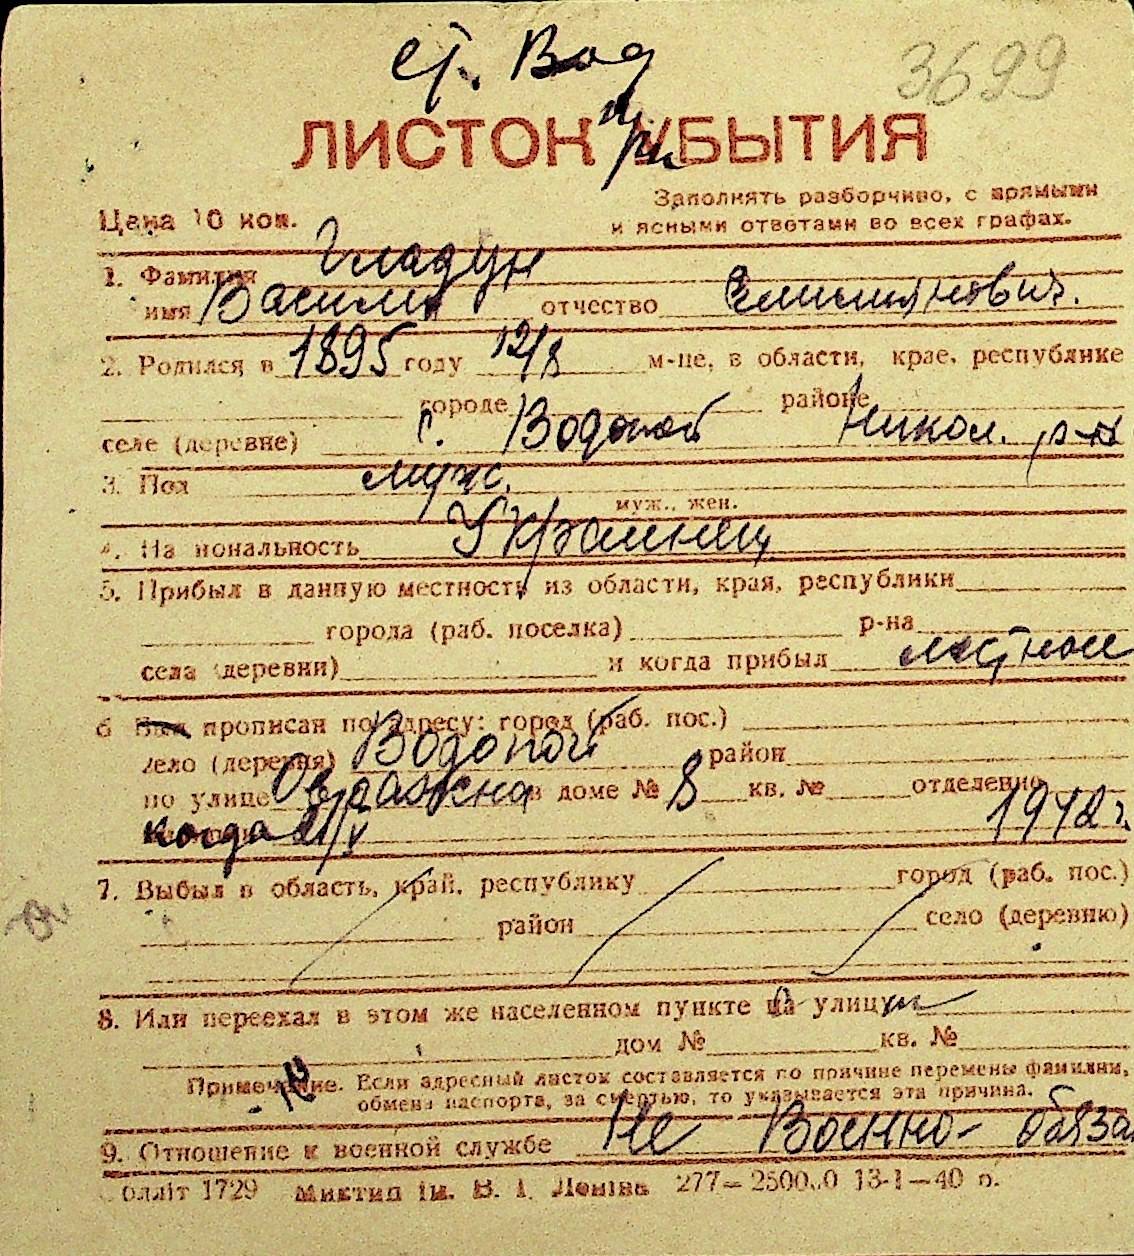 ст. Вод
3699
ЛИСТОК УБЫТИЯ
при
Заполнять разборчиво, с прямыми
Цена 10 коп.
и ясными ответами во всех графах.
1. Фамилия Гладун
имя Василий отчество Емильянович.
2. Родился в 1895 году 12/8 м-це, в области, крае, республике
городе районе
селе (деревне) с. Водопой Никол. р-н
3. Пол муж.
муж., жен.
4. Национальность Украинец
5. Прибыл в данную местность из области, края, республики
города (раб. поселка) р-на
села (деревни) и когда прибыл местной
6 Был прописан по адресу: город (раб. пос.)
село (деревня) Водопой район
по улице Овражна в доме № 8 кв. № отделение
когда 21/V 1942 г.
7. Выбыл в область, край, республику город (раб. пос.)
район село (деревню)
8. Или переехал в этом же населенном пункте на улицу
дом № кв. №
Примечание. Если адресный листок составляется по причине перемены фамилии,
обмена паспорта, за смертью, то указывается эта причина.
9. Отношение к военной службе Не Военно-обяза
олліт 1729 Миктип ім. В. І. Леніна 277— 13-1—40 р.